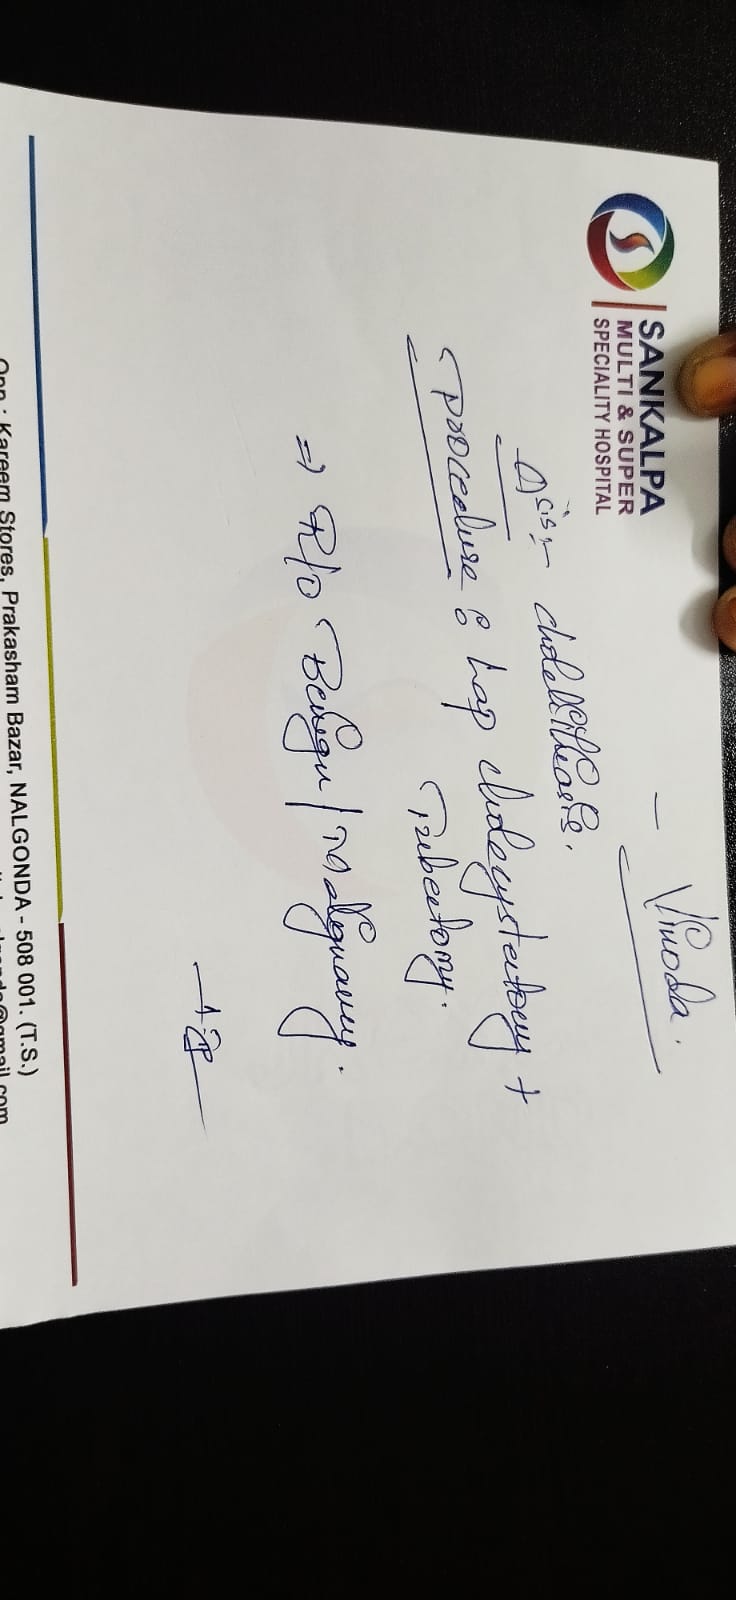 SANKALPA
MULTI & SUPER
SPECIALITY HOSPITAL
- Vinoda.
cholelithiasis.
Proceedure : Lap cholecystectomy +
Tubectomy.
=> R/o Benign / Malignancy.
Opp : Kareem Stores, Prakasham Bazar, NALGONDA - 508 001. (T.S.)